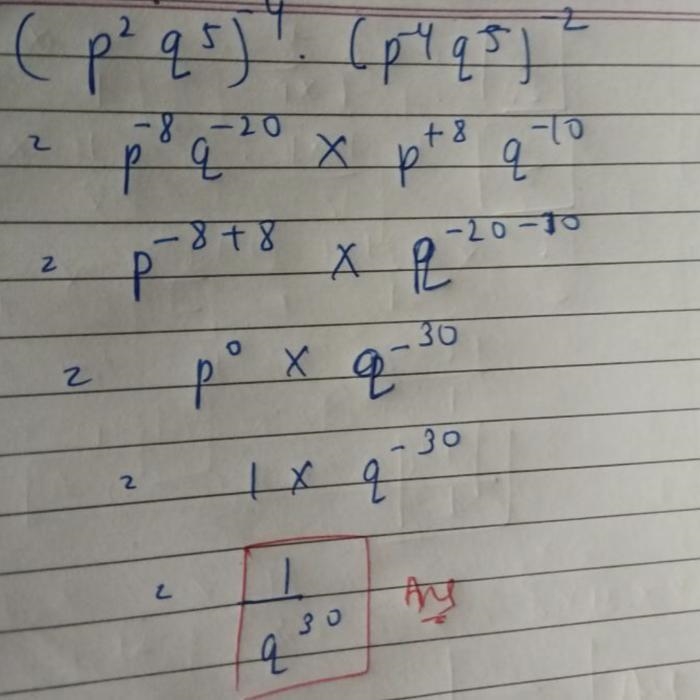 (p² q⁵)⁻⁴ . (p⁻⁴ q⁵)⁻²
= p⁻⁸ q⁻²⁰ × p⁺⁸ q⁻¹⁰
= p⁻⁸⁺⁸ × q⁻²⁰⁻¹⁰
= p⁰ × q⁻³⁰
= 1 × q⁻³⁰
= 1/q³⁰ Ans